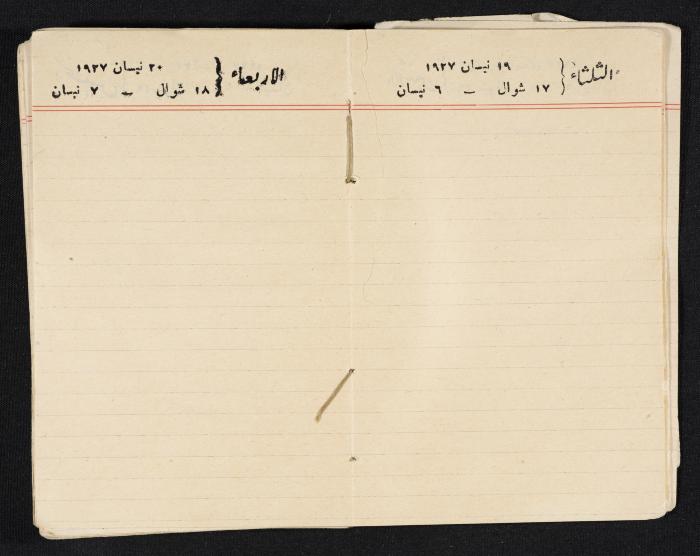 الثلثاء { ١٩ نيسان ١٩٢٧
١٧ شوال — ٦ نيسان
الاربعاء { ٢٠ نيسان ١٩٢٧
١٨ شوال — ٧ نيسان